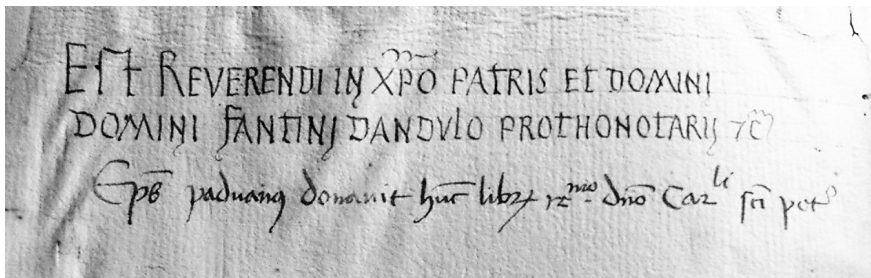 EST REVERENDI IN XP̄O PATRIS ET DOMINI
DOMINI FANTINI DANDULO PROTHONOTARIJ ⁊c̄
Ep̄s paduanꝰ donauit hūc librꝝ rᵐᵒ dn̄o Carˡⁱ sc̄i pet